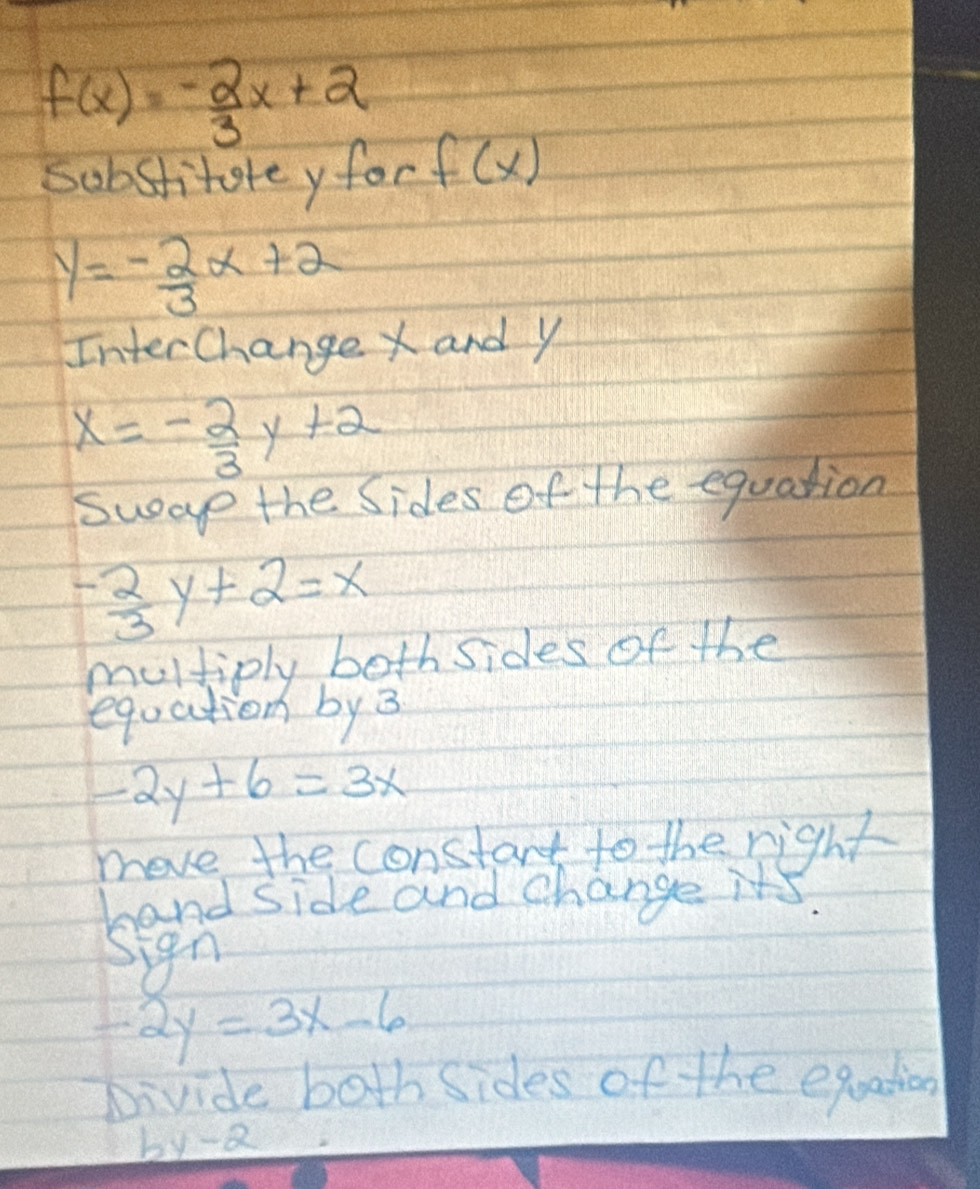 f(x) = -2/3 x + 2
Substitute y for f(x)
y = -2/3 x + 2
InterChange x and y
x = -2/3 y + 2
Swap the Sides of the equation
-2/3 y + 2 = x
multiply both sides of the
equation by 3
-2y + 6 = 3x
move the constant to the right
hand side and change its.
Sign
-2y = 3x - 6
Divide both sides of the equation
by -2